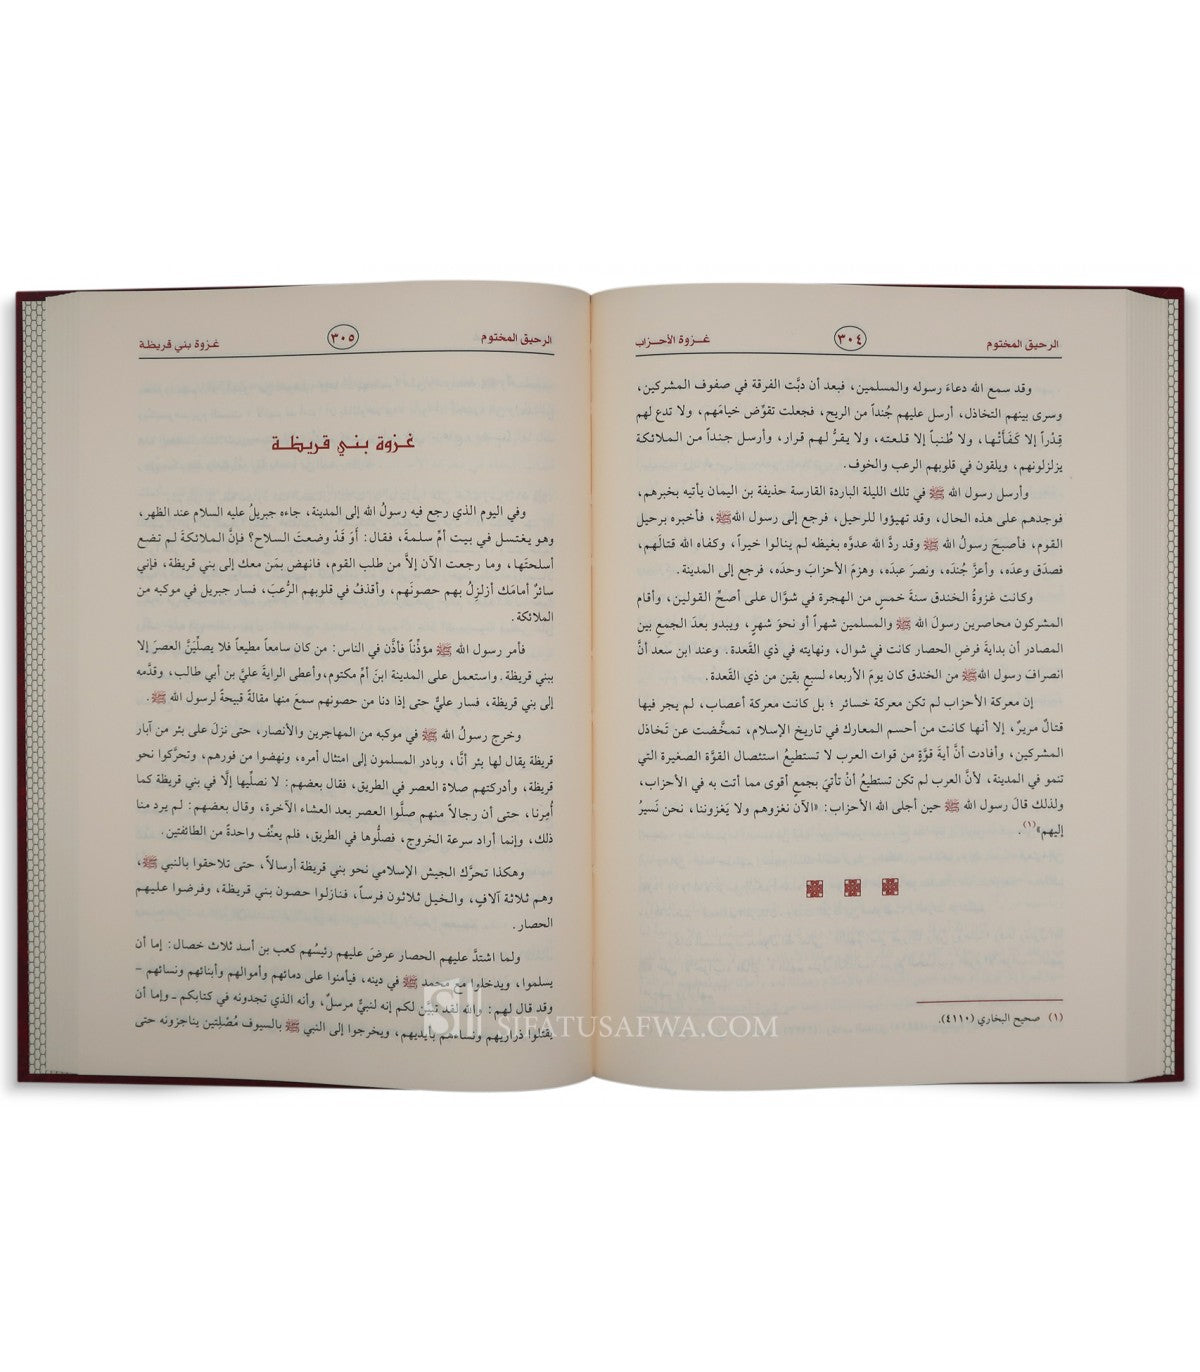 الرحيق المختوم ٣٠٤ غـزوة الأحـزاب
وقد سمع الله دعاءَ رسوله والمسلمين، فبعد أن دبَّت الفرقة في صفوف المشركين،
وسرى بينهم التخاذل، أرسل عليهم جُنداً من الريح، فجعلت تقوِّض خيامَهم، ولا تدع لهم
قِدْراً إلا كَفَأَتْها، ولا طُنباً إلا قلعته، ولا يقرُّ لهم قرار، وأرسل جنداً من الملائكة
يزلزلونهم، ويلقون في قلوبهم الرعب والخوف.
وأرسل رسول الله ﷺ في تلك الليلة الباردة القارسة حذيفة بن اليمان يأتيه بخبرهم،
فوجدهم على هذه الحال، وقد تهيؤوا للرحيل، فرجع إلى رسول اللهﷺ، فأخبره برحيل
القوم، فأصبحَ رسولُ الله ﷺ وقد ردَّ الله عدوَّه بغيظه لم ينالوا خيراً، وكفاه الله قتالَهم،
فصدَق وعدَه، وأعزَّ جُندَه، ونصرَ عبدَه، وهزمَ الأحزابَ وحدَه، فرجع إلى المدينة.
وكانت غزوةُ الخندق سنةَ خمسٍ من الهجرة في شوَّال على أصحِّ القولين، وأقام
المشركون محاصرين رسولَ الله ﷺ والمسلمين شهراً أو نحوَ شهرٍ، ويبدو بعدَ الجمعِ بين
المصادر أن بدايةَ فرضِ الحصار كانت في شوال، ونهايته في ذي القَعدة. وعند ابن سعد أنَّ
انصرافَ رسول اللهﷺ من الخندق كان يومَ الأربعاء لسبعٍ بقين من ذي القَعْدة.
إن معركة الأحزاب لم تكن معركة خسائر؛ بل كانت معركة أعصاب، لم يجر فيها
قتالٌ مريرٌ، إلا أنها كانت من أحسم المعارك في تاريخ الإسلام، تمخَّضت عن تَخاذل
المشركين، وأفادت أنَّ أيةَ قوَّةٍ من قوات العرب لا تستطيعُ استئصال القوَّة الصغيرة التي
تنمو في المدينة، لأنَّ العرب لم تكن تستطيعُ أنْ تأتيَ بجمعٍ أقوى مما أتت به في الأحزاب،
ولذلك قالَ رسول الله ﷺ حين أجلى الله الأحزاب: «الآن نغزوهم ولا يَغزوننا، نحن نَسيرُ
إليهم»(١).
(١) صحيح البخاري (٤١١٠).
الرحيق المختوم ٣٠٥ غـزوة بني قريظة
غزوة بني قريظة
وفي اليوم الذي رجع فيه رسولُ الله إلى المدينة، جاءه جبريلُ عليه السلام عند الظهر،
وهو يغتسل في بيت أمِّ سلمةَ، فقال: أَوَ قَدْ وضعتَ السلاح؟ فإنَّ الملائكةَ لم تضع
أسلحتَها، وما رجعت الآن إلاَّ من طلب القوم، فانهض بمَن معك إلى بني قريظة، فإني
سائرٌ أمامَك أزلزِلُ بهم حصونَهم، وأقذفُ في قلوبهم الرُّعبَ، فسار جبريل في موكبه من
الملائكة.
فأمر رسول الله ﷺ مؤذِّناً فأذَّن في الناس: من كان سامعاً مطيعاً فلا يصلِّيَنَّ العصرَ إلا
ببني قريظة. واستعمل على المدينة ابنَ أمِّ مكتوم، وأعطى الرايةَ عليَّ بن أبي طالب، وقدَّمه
إلى بني قريظة، فسار عليٌّ حتى إذا دنا من حصونهم سمعَ منها مقالةً قبيحةً لرسول الله ﷺ.
وخرج رسولُ الله ﷺ في موكبه من المهاجرين والأنصار، حتى نزلَ على بئر من آبار
قريظة يقال لها بئر أنَّا، وبادر المسلمون إلى امتثال أمره، ونهضوا من فورهم، وتحرَّكوا نحو
قريظة، وأدركتهم صلاة العصر في الطريق، فقال بعضهم: لا نصلِّيها إلَّا في بني قريظة كما
أُمِرنا، حتى أن رجالاً منهم صلَّوا العصر بعد العشاء الآخرة، وقال بعضهم: لم يرد منا
ذلك، وإنما أراد سرعة الخروج، فصلُّوها في الطريق، فلم يعنِّف واحدةً من الطائفتين.
وهكذا تحرَّك الجيش الإسلامي نحو بني قريظة أرسالاً، حتى تلاحقوا بالنبي ﷺ،
وهم ثلاثة آلافٍ، والخيل ثلاثون فرساً، فنازلوا حصون بني قريظة، وفرضوا عليهم
الحصار.
ولما اشتدَّ عليهم الحصار عرضَ عليهم رئيسُهم كعب بن أسد ثلاث خصال: إما أن
يسلموا، ويدخلوا مع محمد ﷺ في دينه، فيأمنوا على دمائهم وأموالهم وأبنائهم ونسائهم -
وقد قال لهم: والله لقد تبيَّن لكم إنه لنبيٌّ مرسلٌ، وأنه الذي تجدونه في كتابكم - وإما أن
يقتلوا ذراريهم ونساءهم بأيديهم، ويخرجوا إلى النبي ﷺ بالسيوف مُصْلِتين يناجزونه حتى
SIFATUSAFWA.COM